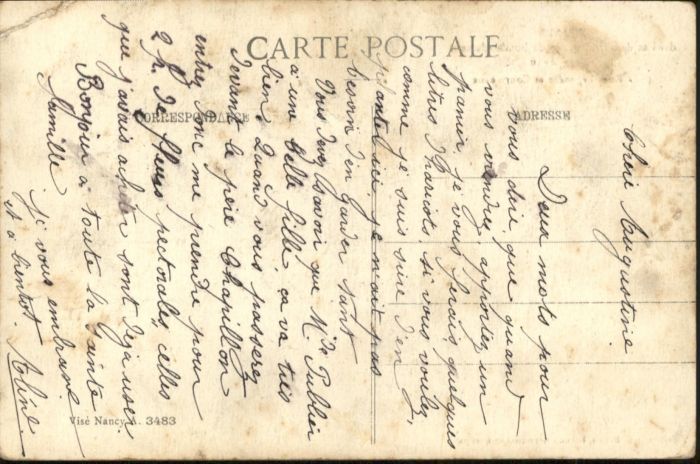 CARTE POSTALE
CORRESPONDANCE
ADRESSE
Chère Augustine
Deux mots pour
vous dire que quand
vous viendrez apportez un
panier je vous ferais quelques
litres d'haricots si vous voulez,
comme je suis sure d'en
ici je n'ait pas
besoin d'en garder tant
Vous devez savoir que Me Publier
à une belle fille, ça va très
bien. Quand vous passerez
devant le père Chapillon
entrez donc me prendre pour
2 f. de fleurs pectorales, celles
que j'avais acheter sont deja usées.
Bonjour à toute la Sainte
famille
je vous embrasse
et a bientot. Aline.
Visé Nancy A. 3483